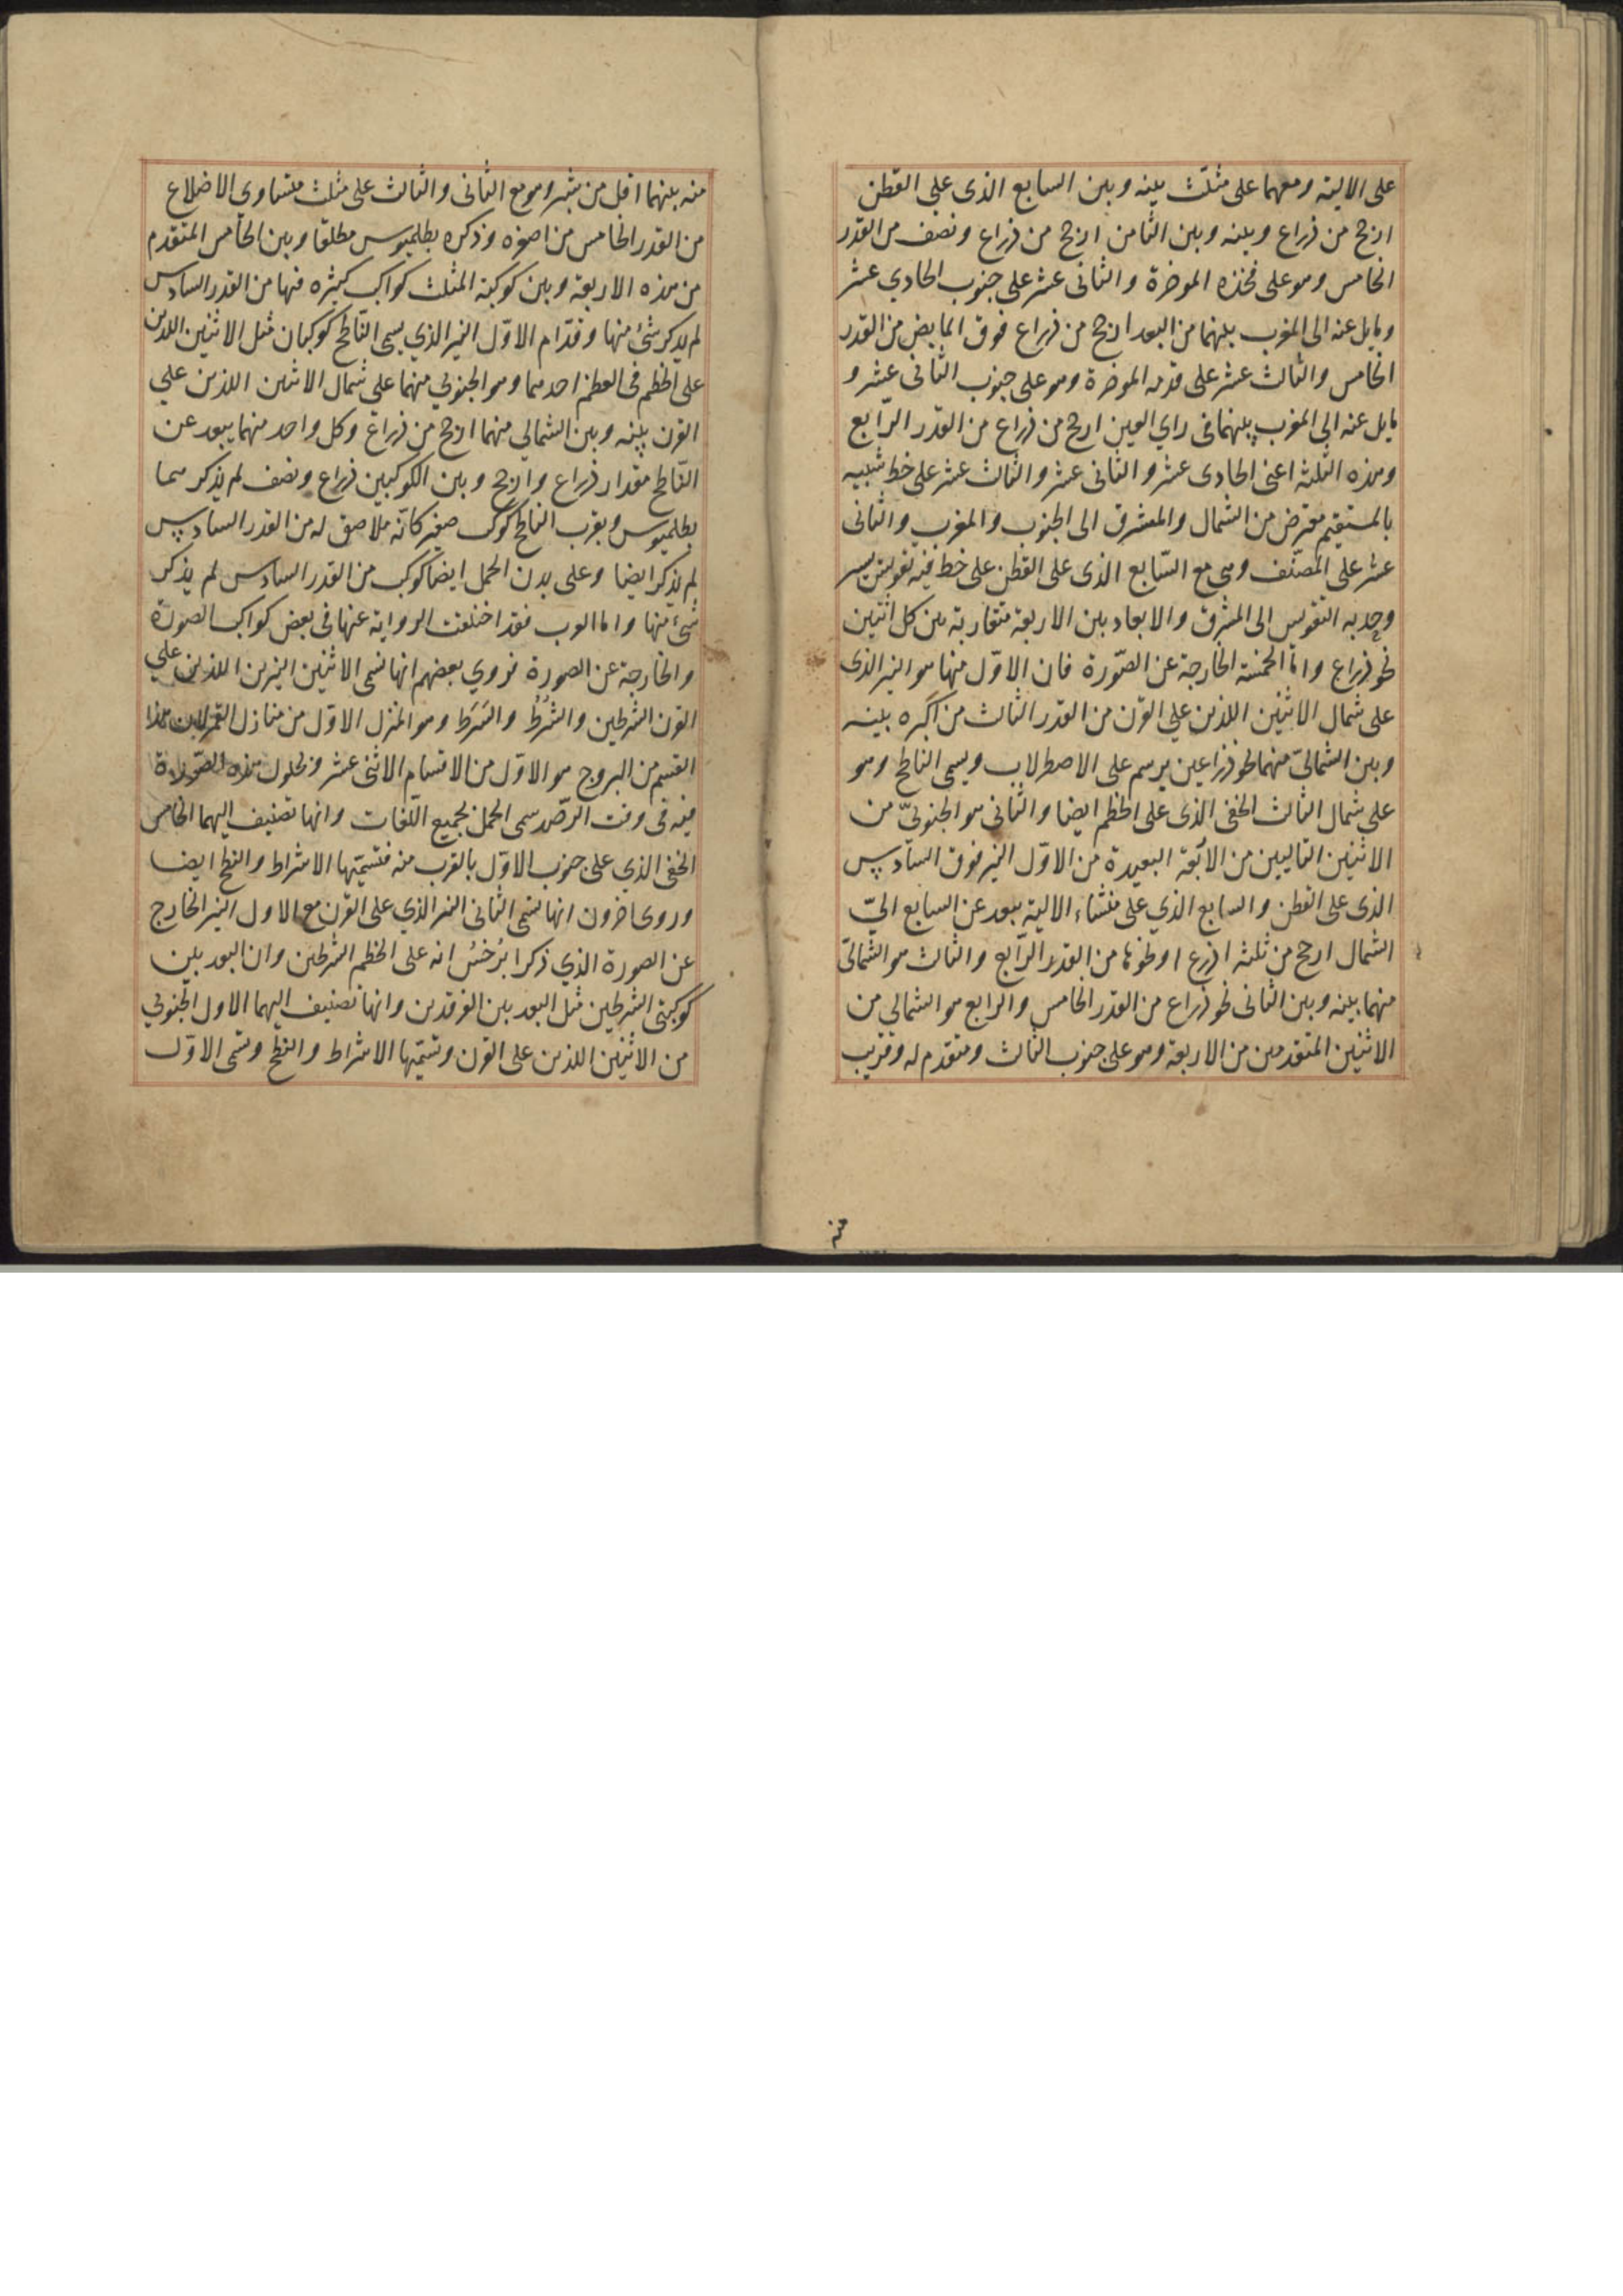 على الالية ومعهما على مثلّث بينه وبين السابع الذى على القطن
ارجح من ذراع وبينه وبين الثامن ارجح من ذراع ونصف من القدر
الخامس وهو على فخذه الموخرة والثانى عشر على جنوب الحادي عشر
ومايل عنه الى المغرب بينهما من البعد ارجح من ذراع فوق المابض من القدر
الخامس والثالث عشر على قدمه الموخرة وهو على جنوب الثانى عشر و
مايل عنه الى المغرب بينهما فى راي العين ارجح من ذراع من القدر الرّابع
وهذه الثلثة اعنى الحادى عشر والثانى عشر والثالث عشر على خط شبيه
بالمستقيم معترض من الشمال والمشرق الى الجنوب والمغرب والثانى
عشر على المصنّف وهى مع السّابع الذى على القطن على خط فيه تقويس يسير
وحدبه التقويس الى المشرق والابعاد بين الاربعة متقاربة بين كل اثنين
نحو ذراع وامّا الخمسة الخارجة عن الصّورة فان الاوّل منها هو النير الذى
على شمال الاثنين اللذين علي القرن من القدر الثالث من اكبره بينه
وبين الشمالىّ منهما نحو ذراعين يرسم على الاصطرلاب ويسمى الناطح وهو
على شمال الثالث الخفى الذى على الخطم ايضا والثانى هو الجنوبىّ من
الاثنين التاليين من الاربعة البعيدة من الاوّل النير فوق السّادس
الذى على القطن والسابع الذي على منشاء الالية ببعد عن السابع الىّ
الشمال ارجح من ثلثه اذرع او نحوها من القدر الرّابع والثالث هو الشمالىّ
منهما بينه وبين الثانى نحو ذراع من القدر الخامس والرابع هو الشمالي من
الاثنين المتقدمين من الاربعة وهو على جنوب الثالث ومتقدم له وقريب
منه
منه بينهما اقل من شبر وهو مع الثانى والثالث على مثلث متساوي الاضلاع
من القدر الخامس من اصغره وذكره بطلميوس مطلقا وبين الخامس المتقدم
من هذه الاربعة وبين كوكبة المثلث كواكب كثيره فيها من القدر السادس
لم يذكر شئ منها وقدّام الاوّل النير الذي يسمى النّاطح كوكبان مثل الاثنين اللذين
على الخطم فى العظم احدهما وهو الجنوبي منهما على شمال الاثنين اللذين علي
القرن بينه وبين الشمالي منهما ارجح من ذراع وكل واحد منهما يبعد عن
النّاطح مقدار ذراع وارجح وبين الكوكبين ذراع ونصف لم يذكر هما
بطلميوس وبقرب الناطح كوكب صغير كانّه ملاصق له من القدر السادس
لم يذكر ايضا وعلى بدن الحمل ايضا كوكب من القدر السادس لم يذكر
شئ منها واما العرب فقد اختلفت الرواية عنها فى بعض كواكب الصورة
والخارجة عن الصورة فروي بعضهم انها تسمى الاثنين النيرين اللذين علي
القرن الشرطين والشُرُط والشَرَط وهو المنزل الاوّل من منازل القمر لان هذا
القسم من البروج هو الاوّل من الاقسام الاثنى عشر ولحلول هذه الصّورة
فيه فى وقت الرّصد سمى الحمل بجميع اللّغات وانها تضيف اليهما الخامس
الخفى الذي على جنوب الاوّل بالقرب منه فتسميّها الاشراط والنطح ايضا
وروى اخرون انها تسمى الثانى النير الذي على القرن مع الاول النير الخارج
عن الصورة الذي ذكر ابرخس انه على الخطم الشرطين وان البعد بين
كوكبتى الشرطين مثل البعد بين الفرقدين وانها تضيف اليهما الاول الجنوبي
من الاثنين اللذين على القرن وتسمّيها الاشراط والنطح وتسمى الاوّل